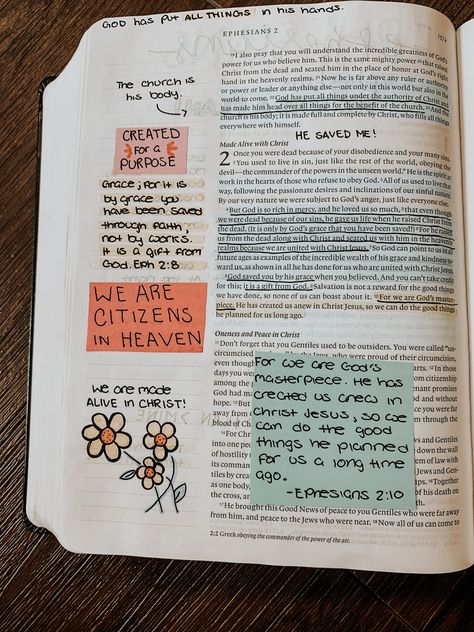 GOD HAS PUT ALL THINGS IN HIS HANDS.
EPHESIANS 2
19 I also pray that you will understand the incredible greatness of God's
power for us who believe him. This is the same mighty power 20 that raised
Christ from the dead and seated him in the place of honor at God's right
hand in the heavenly realms. 21 Now he is far above any ruler or authority
or power or leader or anything else—not only in this world but also in the
world to come. 22 God has put all things under the authority of Christ and
has made him head over all things for the benefit of the church. 23 And the
church is his body; it is made full and complete by Christ, who fills all things
everywhere with himself.
HE SAVED ME!
Made Alive with Christ
2 Once you were dead because of your disobedience and your many sins.
2 You used to live in sin, just like the rest of the world, obeying the
devil—the commander of the powers in the unseen world.* He is the spirit at
work in the hearts of those who refuse to obey God. 3 All of us used to live that
way, following the passionate desires and inclinations of our sinful nature.
By our very nature we were subject to God's anger, just like everyone else.
4 But God is so rich in mercy, and he loved us so much, 5 that even though
we were dead because of our sins, he gave us life when he raised Christ from
the dead. (It is only by God's grace that you have been saved!) 6 For he raised
us from the dead along with Christ and seated us with him in the heavenly
realms because we are united with Christ Jesus. 7 So God can point to us in all
future ages as examples of the incredible wealth of his grace and kindness
toward us, as shown in all he has done for us who are united with Christ Jesus.
8 God saved you by his grace when you believed. And you can't take credit
for this; it is a gift from God. 9 Salvation is not a reward for the good things
we have done, so none of us can boast about it. 10 For we are God's master-
piece. He has created us anew in Christ Jesus, so we can do the good things
he planned for us long ago.
Oneness and Peace in Christ
11 Don't forget that you Gentiles used to be outsiders. You were called "un-
17 He brought this Good News of peace to you Gentiles who were far away
from him, and peace to the Jews who were near. 18 Now all of us can come to
2:2 Greek obeying the commander of the power of the air.
The church is
his body.
CREATED
for a
PURPOSE
Grace; for it is
by grace you
have been saved
through faith,
not by works.
It is a gift from
God. Eph 2:8
WE ARE
CITIZENS
IN HEAVEN
We are made
ALIVE IN CHRIST!
For we are God's
masterpiece. He has
created us anew in
Christ Jesus, so we
can do the good
things he planned
for us a long time
ago.
-Ephesians 2:10